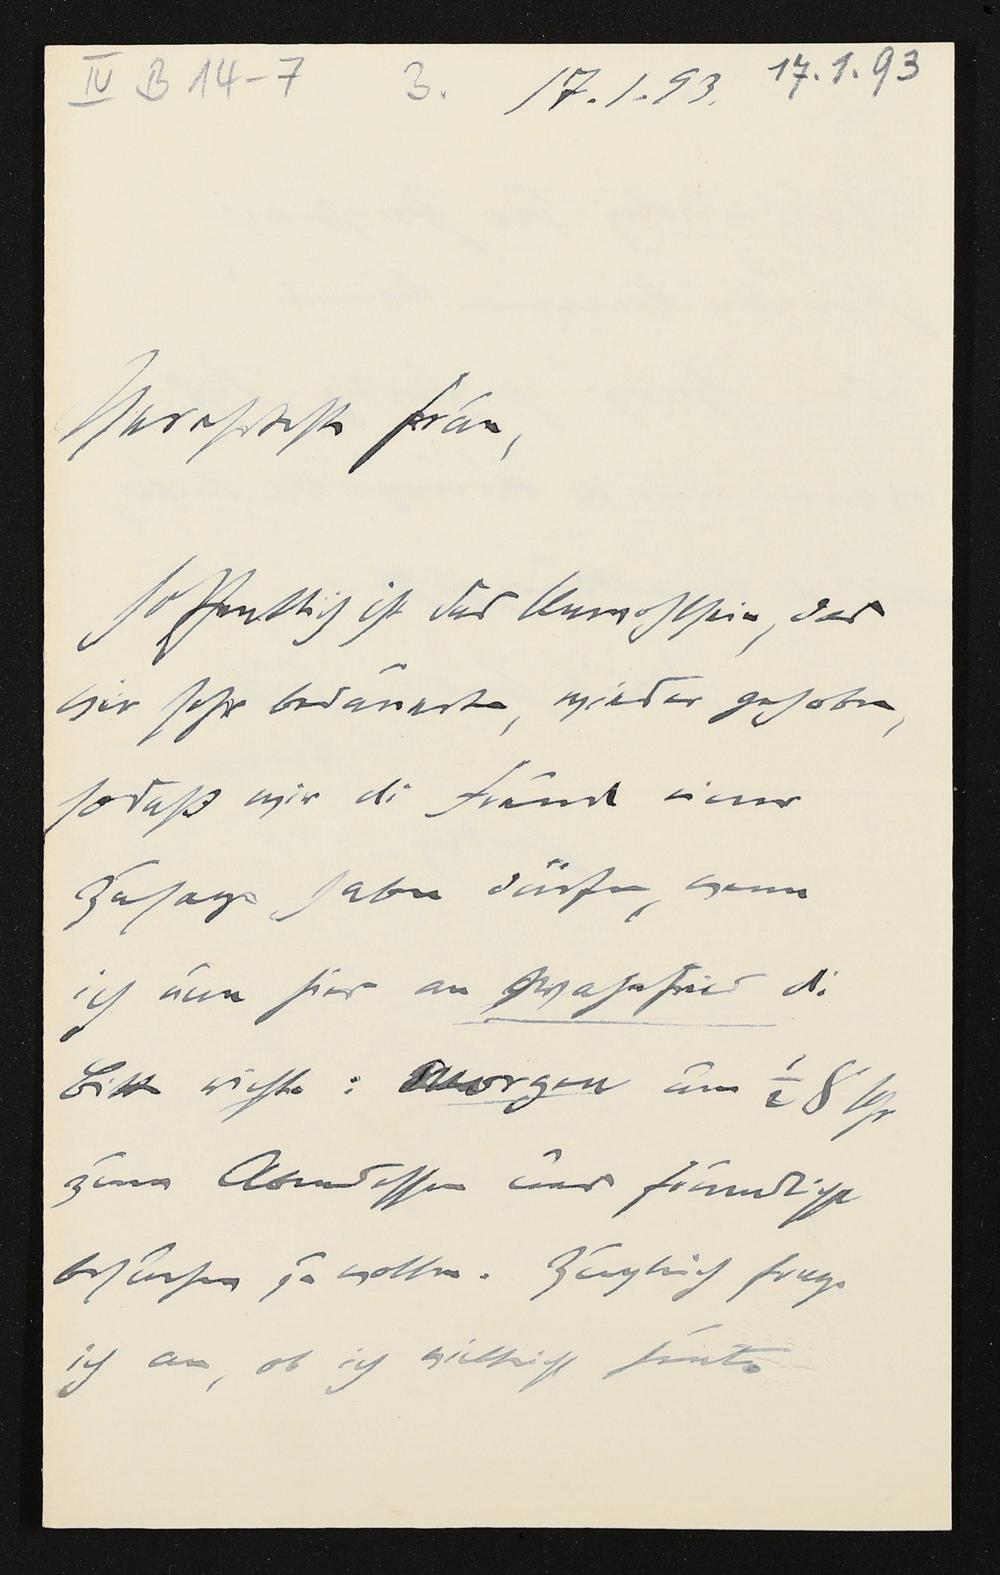 IV B 14-7 3. 17.1.93. 17.1.93
Verehrteste Frau,
hoffentlich ist das Unwohlsein, das
wir sehr bedauerten, wieder gehoben,
sodaß wir die Freude einer
Zusage haben dürfen, wenn
ich nun hier an Wahnfried die
Bitte richte: Morgen um ½ 8 Uhr
zum Abendessen uns freundlichst
besuchen zu wollen. Zugleich frage
ich an, ob ich vielleicht heute